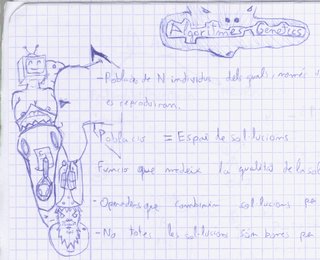 Algorismes Genetics
- Població de N individus dels quals només
es reproduiran.
Població = Espai de sol·lucions
Funció que medeix la qualitat de la sol
- Operadors que combinin sol·lucions per
- No totes les sol·lucions són bones per